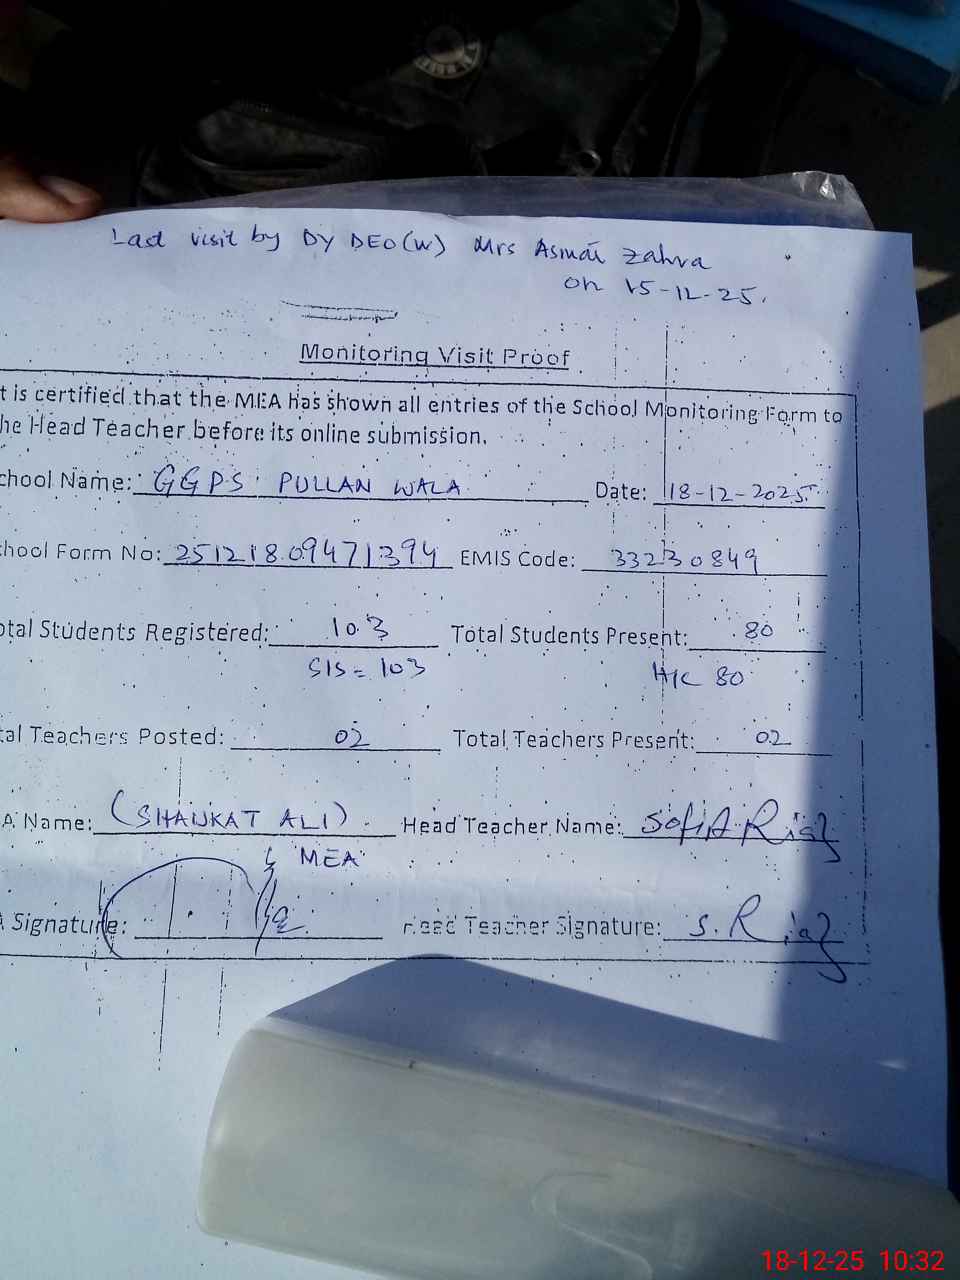 Last visit by DY DEO(W) Mrs Asmat Zahra
on 15-12-25.
Monitoring Visit Proof
t is certified that the MEA has shown all entries of the School Monitoring Form to
he Head Teacher before its online submission.
chool Name: GGPS PULLAN WALA Date: 18-12-2025
hool Form No: 25121809471394 EMIS Code: 33230849
otal Students Registered: 103 Total Students Present: 80
SIS = 103 H/C 80
tal Teachers Posted: 02 Total Teachers Present: 02
A Name: (SHAUKAT ALI) Head Teacher Name: Sofia Riaz
MEA
A Signature: Head Teacher Signature: S. Riaz
18-12-25 10:32